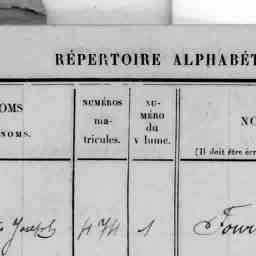 RÉPERTOIRE ALPHABÉT
OMS
NOMS.
NUMÉROS
ma-
tricules.
NU-
MÉRO
du
v lume.
NO
(Il doit être écr
Joseph 474 1 Four